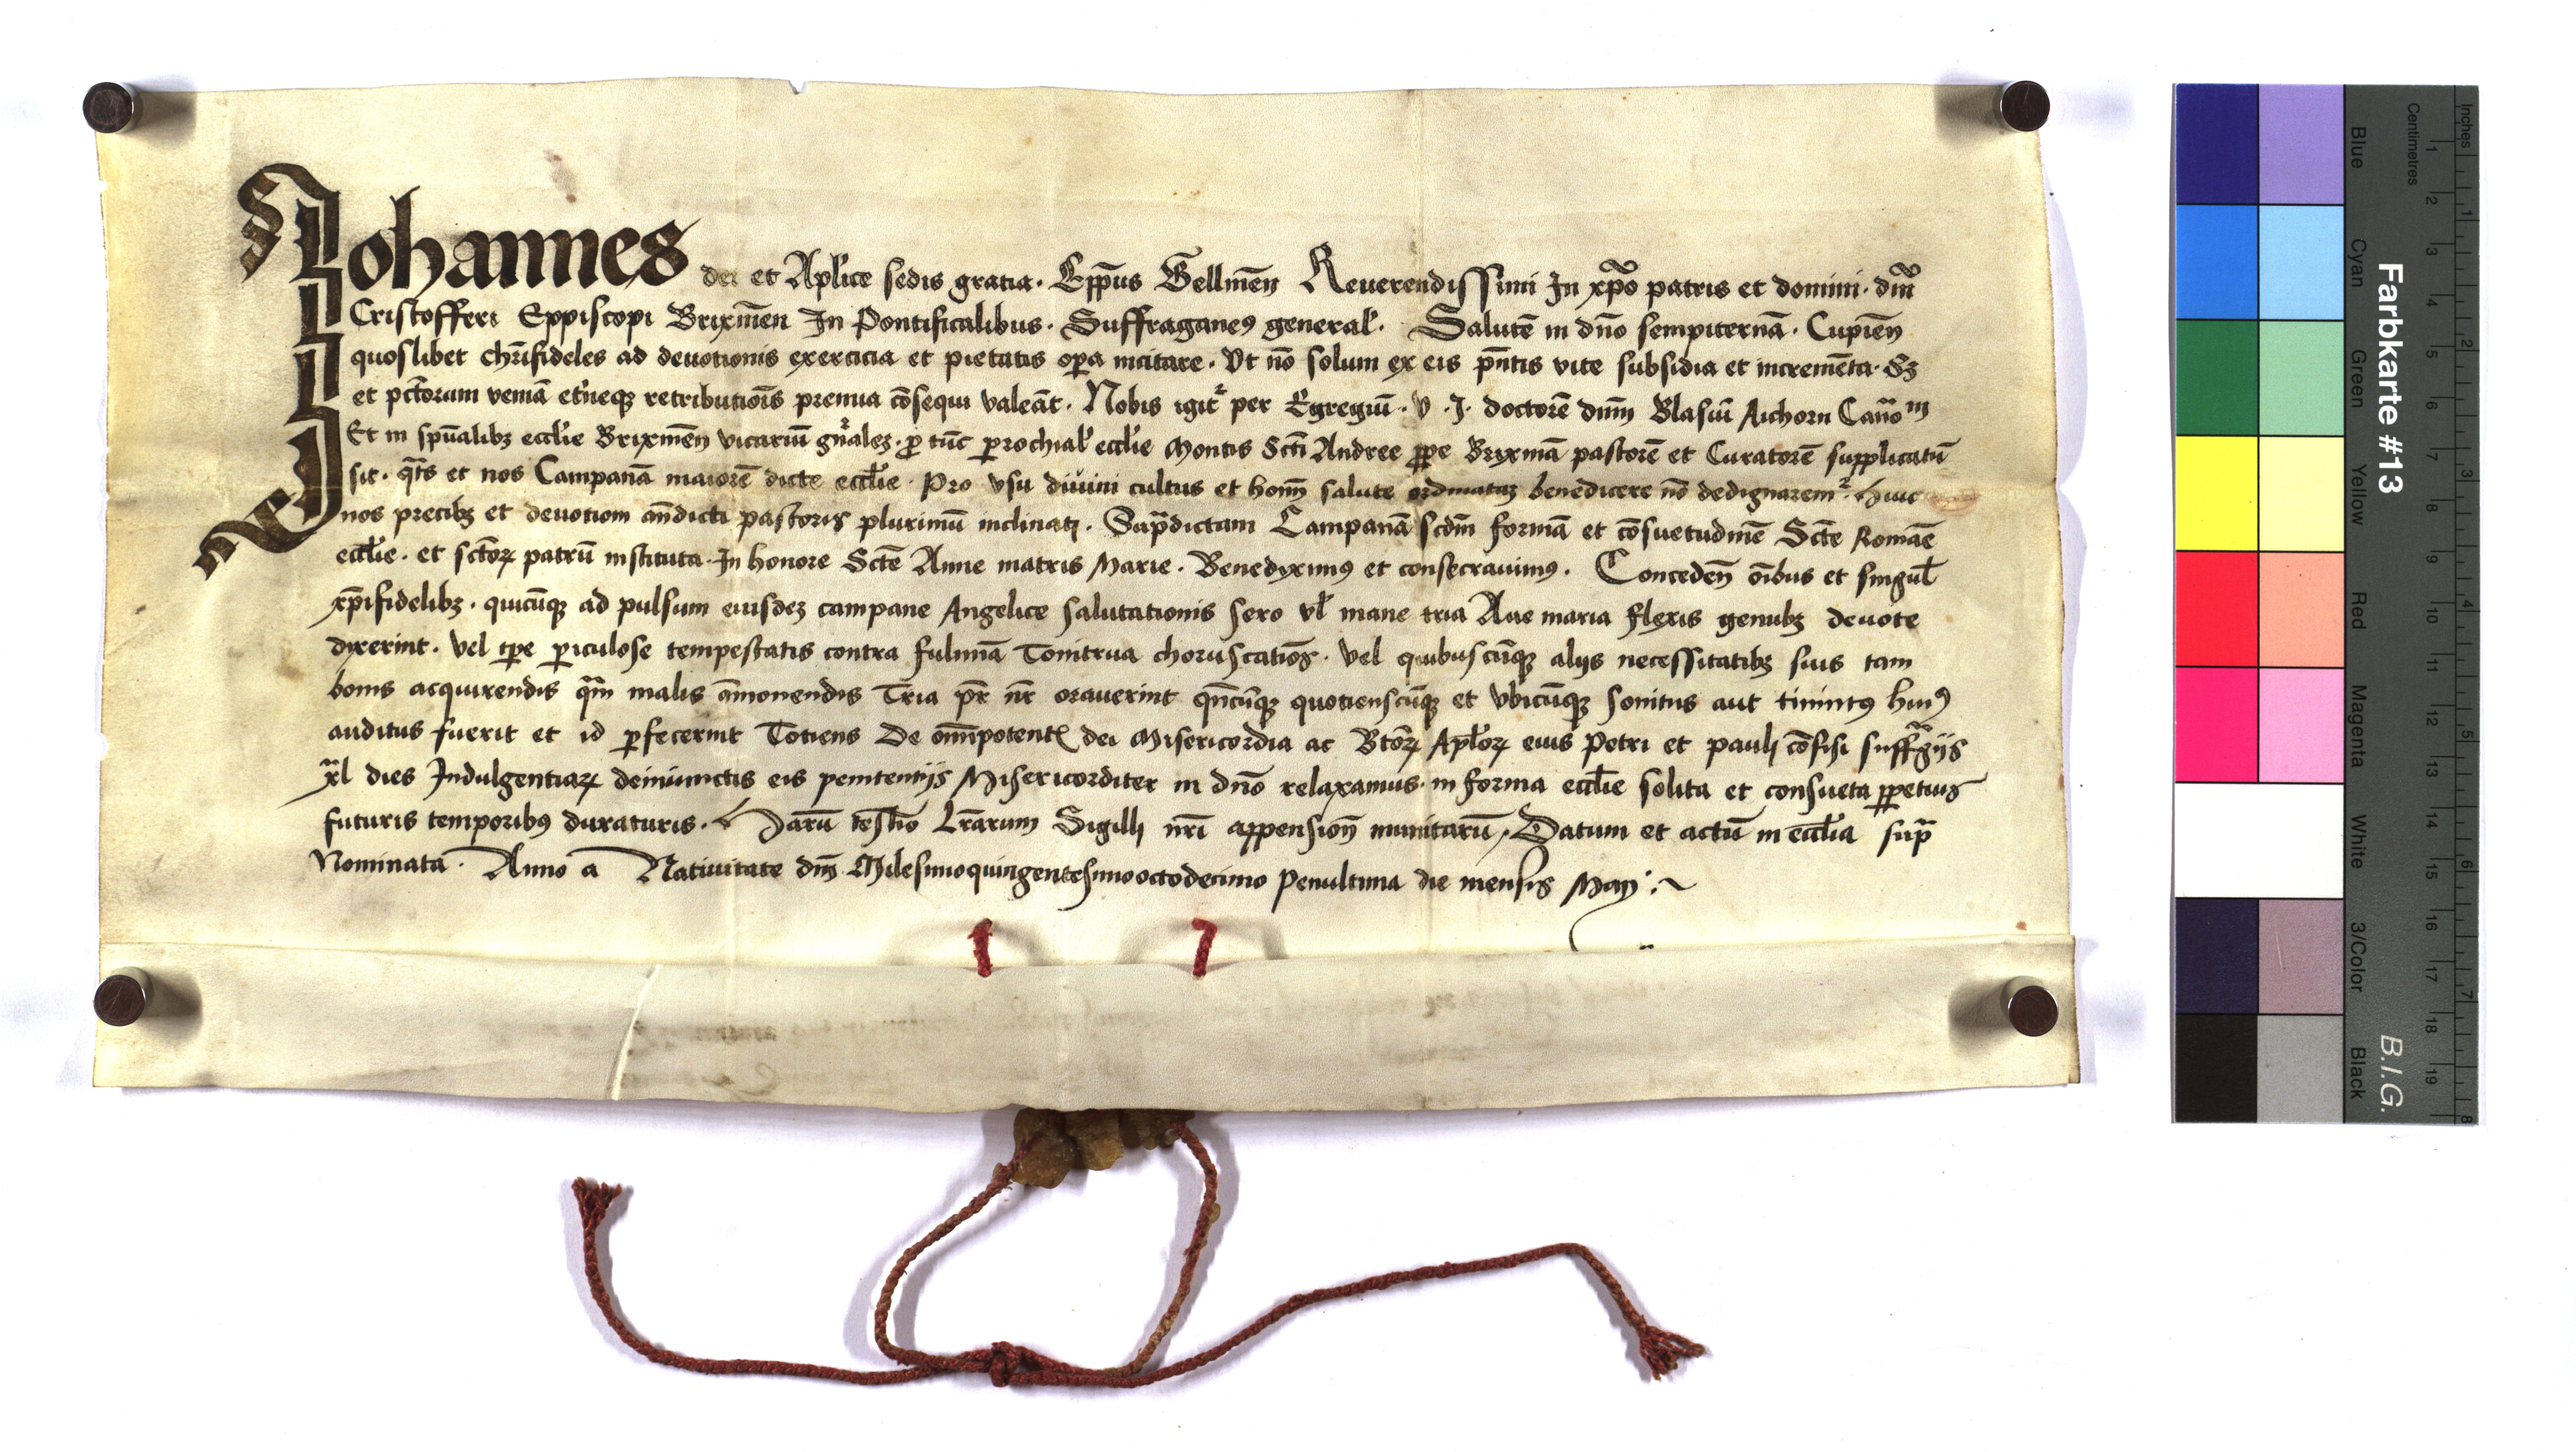 Johannes dei et Aplice sedis gratia. Epp̄us Bellineñ Reuerendissimi In xp̄o patris et domini. dñi
Cristofferi Eppiscopi Brixineñ In Pontificalibus. Suffraganeꝰ general̛. Salutē in dño sempiternā. Cupieñ
quoslibet chr̄ifideles ad deuotionis exercicia et pietatis oꝑa incitare. Vt nō solum ex eis p̄ntis vite subsidia et incremēta. Sꝫ
et pctōrum veniā et̛neqꝫ retributiōis premia cōsequi valeāt. Nobis igit᷑ per Egregiū. V. J. doctorē dnm̄ Blasiū Aichorn Cano͞m
Et in spūalibꝫ eccl̄ie Brixineñ vicariū gn̄alez. ꝓ tūc ꝑrochial̛ eccl̄ie Montis Scti Andree ꝓpe Brixinā pastorē et Curatorē supplicatū
sit. q̄ts et nos Campanā maiorē dicte eccl̄ie. Pro vsu diuini cultus et hom̄ salute ordinataꝫ benedicere nō dedignarem᷑. Huic
nos precibꝫ et deuotiom an̄dicti pastoris plurimū inclinati. Sup̄dictam Campanā scdm̄ formā et cōsuetudinē Scte Romāe
eccl̄ie. et sctōrꝝ patrū instituta. In honore Scte Anne matris Marie. Benedyximꝰ et consecrauimꝰ. Concedeñ ōibus et singul̄
xp̄ifidelibꝫ. quicūqꝫ ad pulsum eiusdeꝫ campane Angelice salutationis sero vl̄ mane tria Aue maria flexis genubꝫ deuote
dyxerint. Vel tꝑe ꝑiculose tempestatis contra fulminā Tonitrua choruscatiōs. Vel quibuscūqꝫ alijs necessitatibꝫ suis tam
bonis acquirendis q̄m malis āmouendis Tria pr̄ nr̄ orauerint qn̄cūqꝫ quotienscūqꝫ et vbicūqꝫ sonitus aut tinnitꝰ huiꝰ
auditus fuerit et id ꝑfecerint Totiens De om̄ipotentꝭ dei Misericordia ac Btōrꝝ Apl̄orꝝ eius Petri et pauli cōfisi suffr̄gijs
xl dies Indulgentiarꝝ deiniunctis eis penitentijs Misericorditer in dño relaxamus. in forma eccl̄ie solita et consueta ꝑpetuis
futuris temporibꝰ duraturis. Harū testīo Lr̄arum Sigilli nr̄i appensioñ munitarū, Datum et actū in eccl̄ia sup̄
Nominata. Anno a Natiuitate dnī Milesimoquingentesimooctodecimo Penultima die mensis Maij
Farbkarte #13
B.I.G.
Inches
1 2 3 4 5 6 7 8
Centimetres
1 2 3 4 5 6 7 8 9 10 11 12 13 14 15 16 17 18 19
Blue
Cyan
Green
Yellow
Red
Magenta
White
3/Color
Black